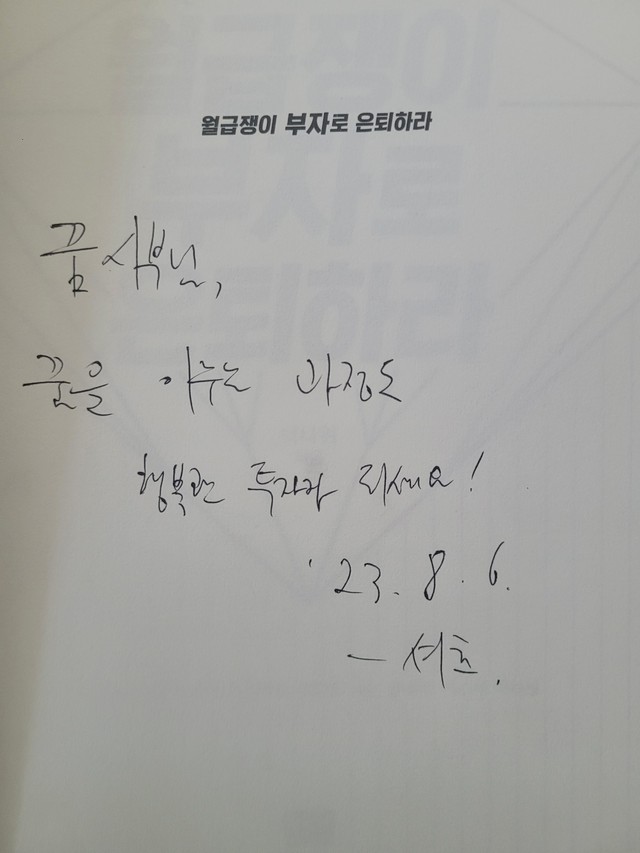 월급쟁이 부자로 은퇴하라
꿈사부님,
꿈을 이루는 과정도
행복한 투자가 되세요!
'23. 8. 6.
- 서호.